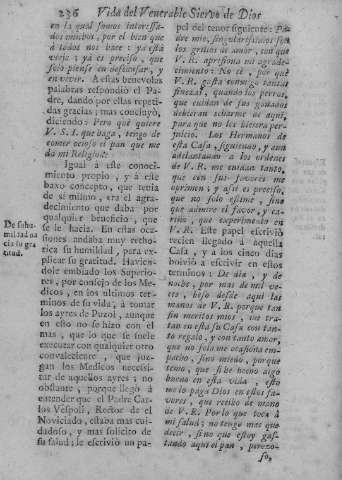 236 Vida del Venerable Siervo de Dios
en la qual somos interessados
ambos, por el bien que
à todos nos hace: ya està
viejo; y à es preciso, que
solo piense en descansar, y
en vivir. A estas benevolas
palabras respondiò el Padre,
dando por ellas repetidas
gracias; mas concluyò,
diciendo: Pero què quiere
V. S. I. que haga, tengo de
comer ocioso el pan que me
dà mi Religion?
Igual à este conocimiento
propio, y à este
baxo concepto, que tenia
de sì mismo, era el agradecimiento
que daba por
qualquier beneficio, que
se le hacia. En estas ocasiones
andaba muy rethorica
su humildad, para explicar
su gratitud. Haviendole
embiado los Superiores,
por consejo de los Medicos,
en los ultimos terminos
de su vida, à tomar
los ayres de Puzol, aunque
en esto no se hizo con èl
mas, que lo que se suele
executar con qualquier otro
convaleciente, que juzgan
los Medicos necessitar
de aquellos ayres; no
obstante, porque llegò à
entender que el Padre Carlos
Vespoli, Rector de el
Noviciado, estaba mas cuidadoso,
y mas solicito de
su salud; le escriviò un papel
De su humildad
nacia su gratitud.
del tenor siguiente: Padre
mio, singularissimos son
los grillos de amor, con que
V. R. aprisiona mi agradecimiento:
No sè, por què
V. R. gasta conmigo tantas
finezas, quando los perros,
que cuidan de sus ganados
debieran echarme de aqui,
para que no los hiciera perjuicio.
Los Hermanos de
esta Casa, siguiendo, y aun
adelantando à los ordenes
de V. R. me cuidan tanto,
que con sus favores me
oprimen; y assi es preciso,
que no solo estime, sino
que admire el favor, y cariño,
que experimento en
V. R. Este papel escriviò
recien llegado à aquella
Casa, y à los cinco dias
bolviò à escrivir en estos
terminos: De dia, y de
noche, por mas de mil veces,
beso desde aqui las
manos de V. R. porque tan
sin meritos mios, me tratan
en esta su Casa con tanto
regalo, y con tanto amor,
que no solo me ocasiona empacho,
sino miedo, porque
temo, que si he hecho algo
bueno en esta vida, esto
me lo paga Dios en estos favores,
que recibo de mano
de V. R. Por lo que toca à
mi salud; no tengo mas que
decir, sino que estoy gastando
aqui el pan, perezoso,